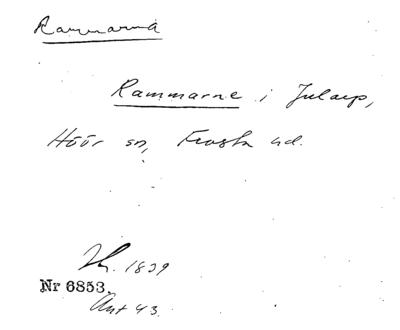 Rammarna
Rammarne i Jularp,
Höör sn, Frosta hd.
1829
Nr 6853.
Ant 43.